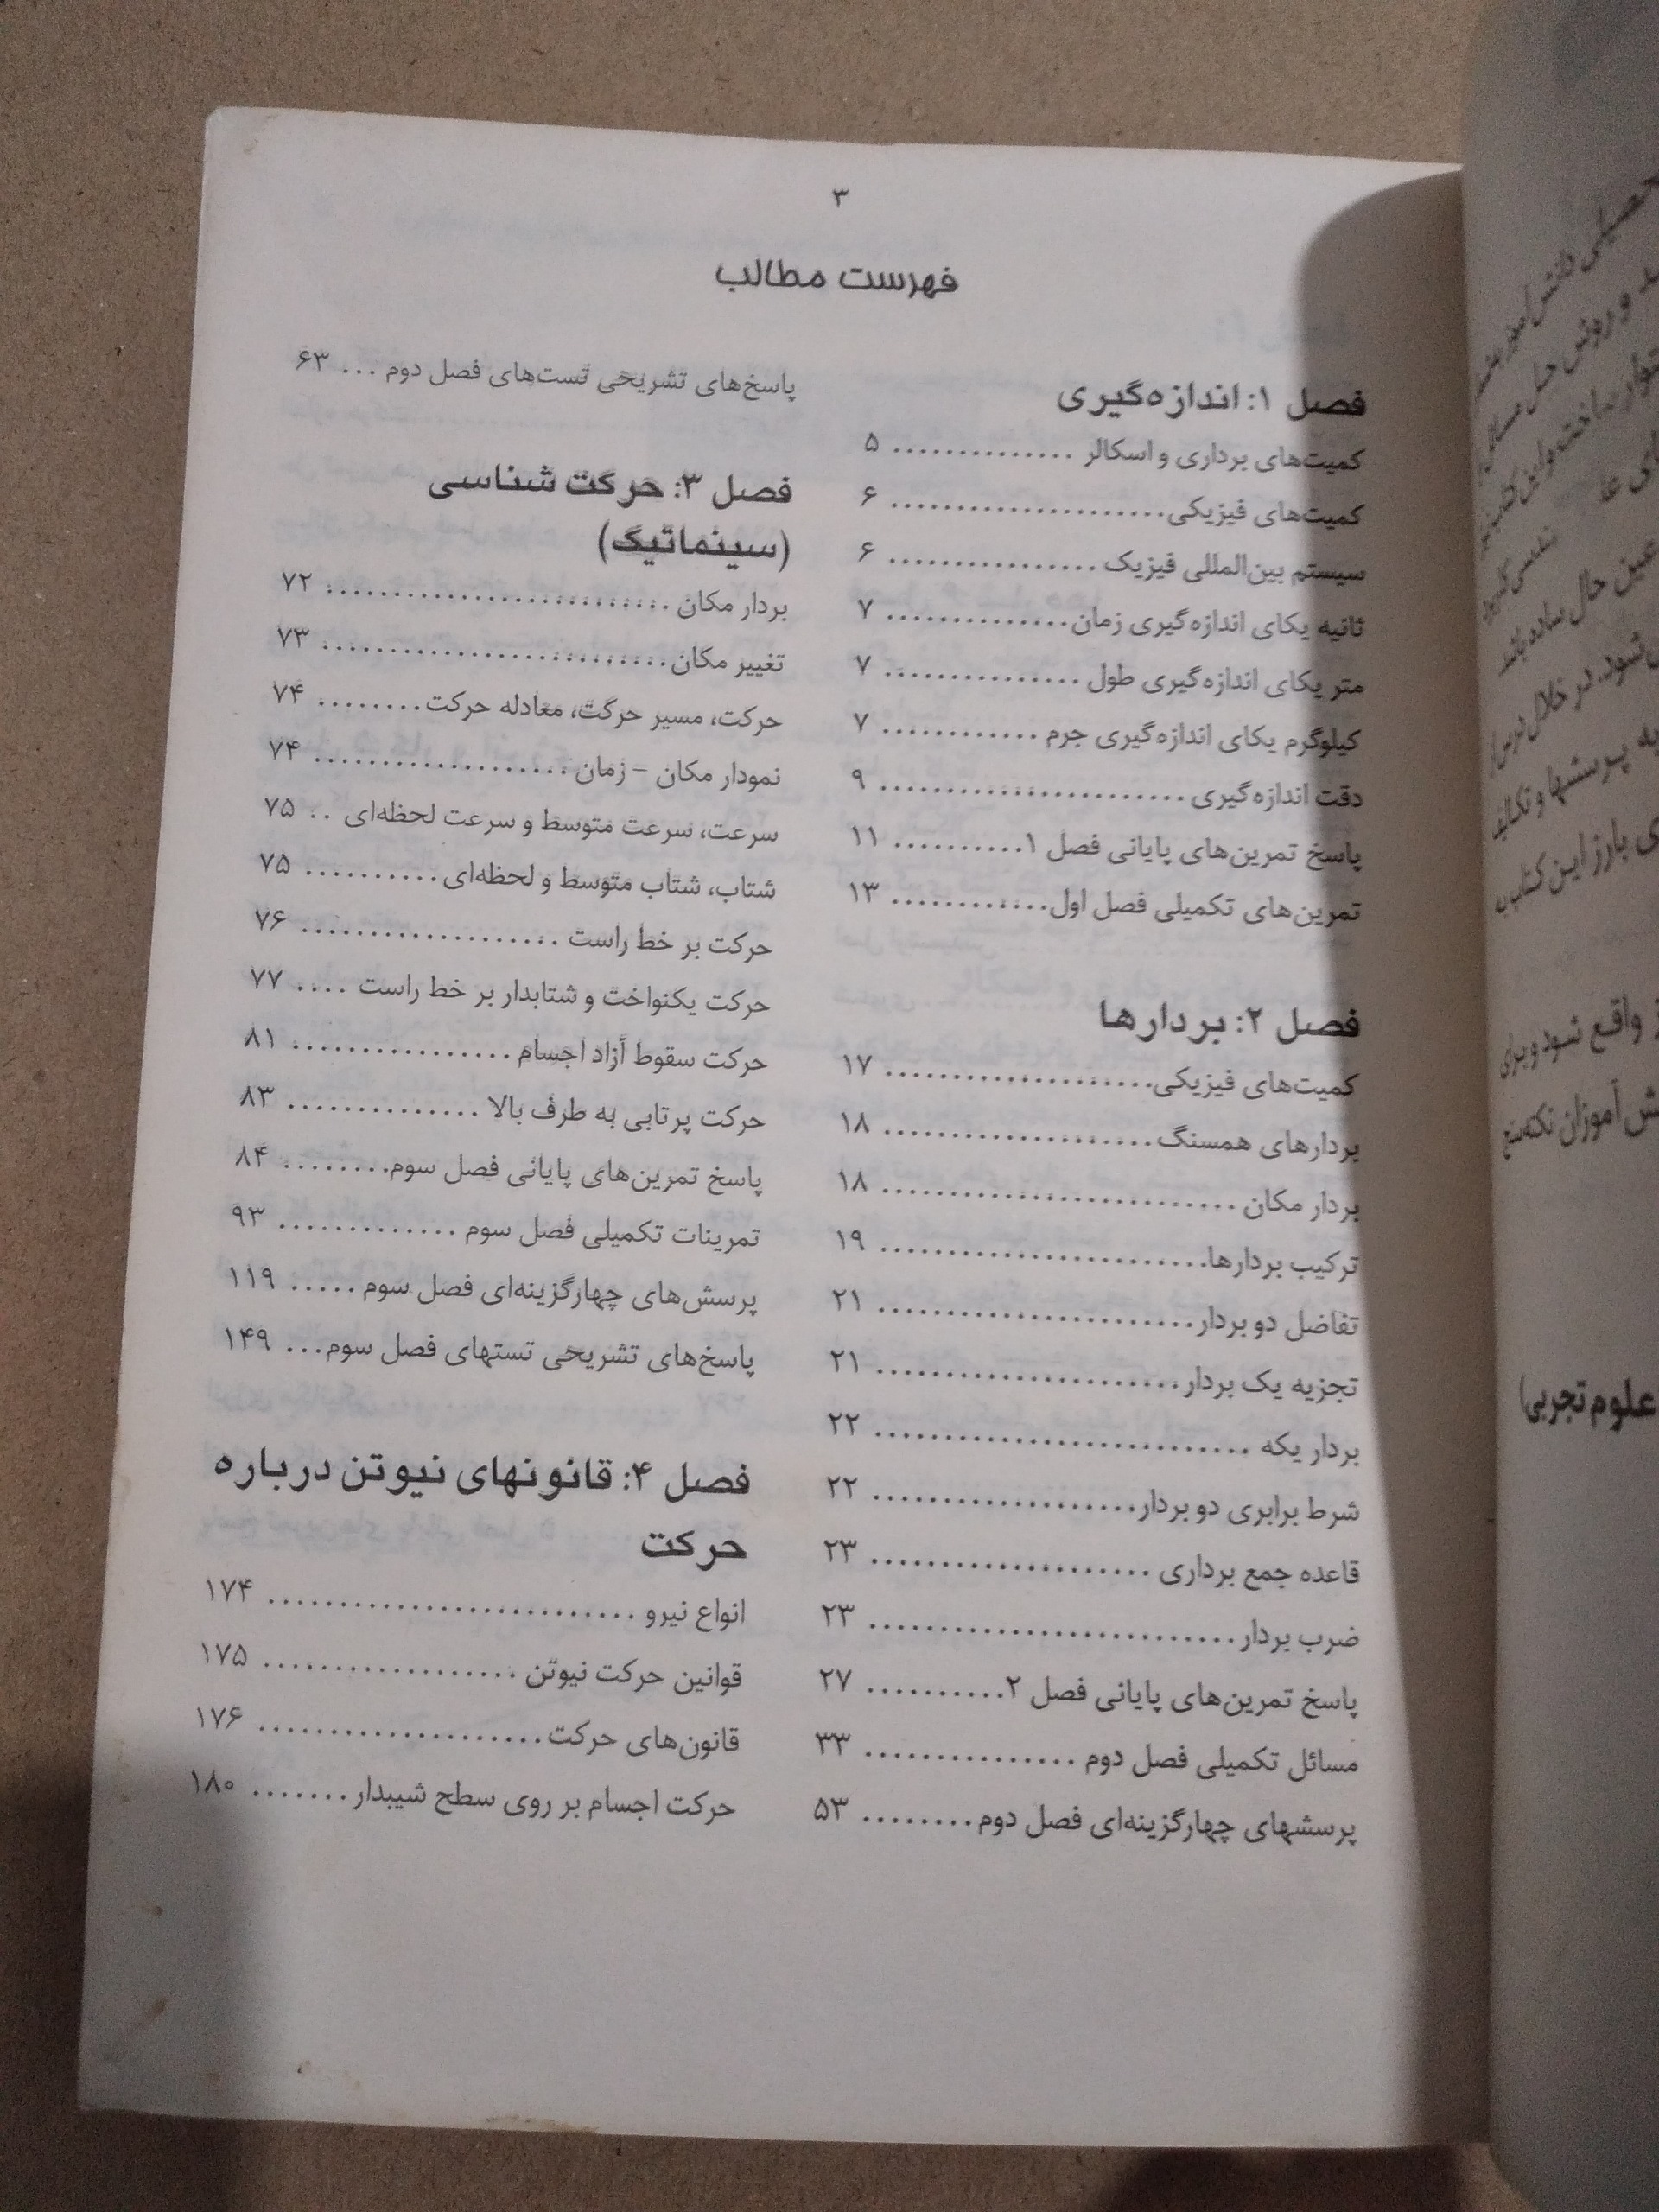 ۳
فهرست مطالب
فصل ۱: اندازه‌گیری
کمیت‌های برداری و اسکالر .............. ۵
کمیت‌های فیزیکی..................... ۶
سیستم بین‌المللی فیزیک ................ ۶
ثانیه یکای اندازه‌گیری زمان.............. ۷
متر یکای اندازه‌گیری طول ............... ۷
کیلوگرم یکای اندازه‌گیری جرم ............ ۷
دقت اندازه‌گیری........................ ۹
پاسخ تمرین‌های پایانی فصل ۱.......... ۱۱
تمرین‌های تکمیلی فصل اول............ ۱۳
فصل ۲: بردارها
کمیت‌های فیزیکی..................... ۱۷
بردارهای همسنگ..................... ۱۸
بردار مکان ........................... ۱۸
ترکیب بردارها......................... ۱۹
تفاضل دو بردار........................ ۲۱
تجزیه یک بردار....................... ۲۱
بردار یکه ............................ ۲۲
شرط برابری دو بردار.................... ۲۲
قاعده جمع برداری ..................... ۲۳
ضرب بردار............................ ۲۳
پاسخ تمرین‌های پایانی فصل ۲.......... ۲۷
مسائل تکمیلی فصل دوم ............... ۳۳
پرسشهای چهارگزینه‌ای فصل دوم........ ۵۳
پاسخ‌های تشریحی تست‌های فصل دوم ... ۶۳
فصل ۳: حرکت شناسی
(سینماتیک)
بردار مکان .......................... ۷۲
تغییر مکان.......................... ۷۳
حرکت، مسیر حرکت، معادله حرکت........ ۷۴
نمودار مکان – زمان.................... ۷۴
سرعت، سرعت متوسط و سرعت لحظه‌ای .. ۷۵
شتاب، شتاب متوسط و لحظه‌ای.......... ۷۵
حرکت بر خط راست .................... ۷۶
حرکت یکنواخت و شتابدار بر خط راست .... ۷۷
حرکت سقوط آزاد اجسام ................ ۸۱
حرکت پرتابی به طرف بالا .............. ۸۳
پاسخ تمرین‌های پایانی فصل سوم........ ۸۴
تمرینات تکمیلی فصل سوم ............. ۹۳
پرسش‌های چهارگزینه‌ای فصل سوم ..... ۱۱۹
پاسخ‌های تشریحی تستهای فصل سوم... ۱۴۹
فصل ۴: قانونهای نیوتن درباره
حرکت
انواع نیرو ........................... ۱۷۴
قوانین حرکت نیوتن ................... ۱۷۵
قانون‌های حرکت..................... ۱۷۶
حرکت اجسام بر روی سطح شیبدار....... ۱۸۰
عین حال ساده باشد
شود. در خلال درس
به پرسشها و تکالیف
ی بارز این کتاب به
واقع شود و برای
ش آموزان نکته‌سنج
علوم تجربی)